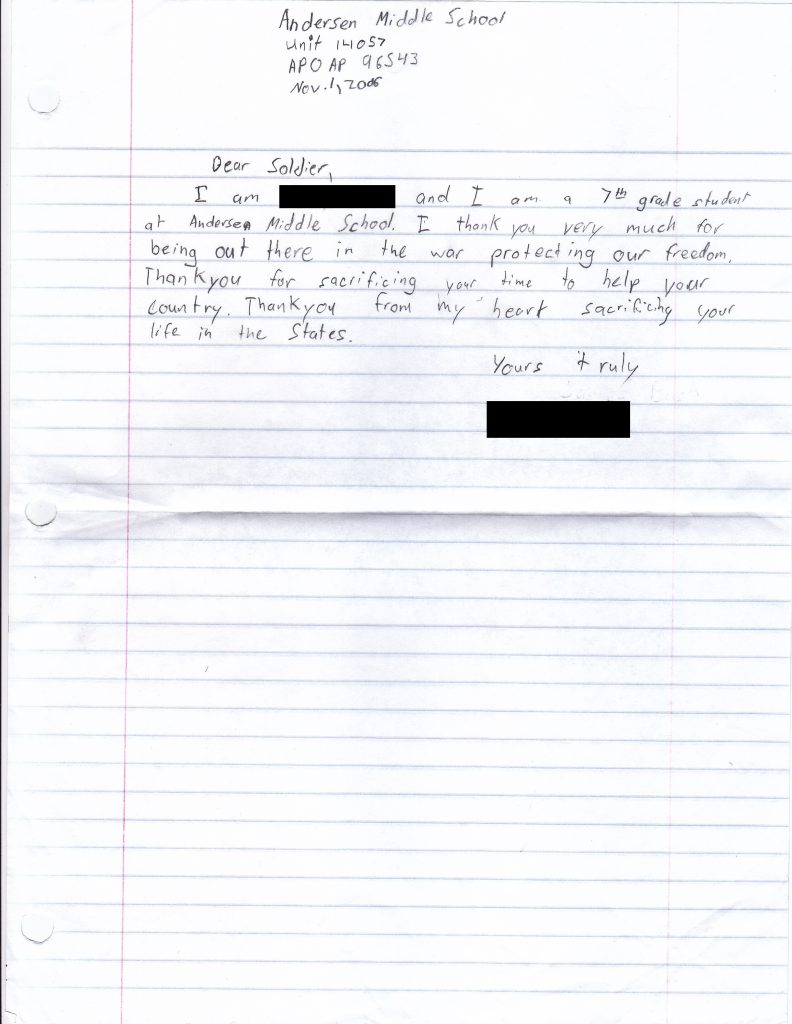 Andersen Middle School
Unit 14057
APO AP 96543
Nov. 1, 2006
Dear Soldier,
I am and I am a 7th grade student
at Andersen Middle School. I thank you very much for
being out there in the war protecting our freedom.
Thankyou for sacrificing your time to help your
country. Thankyou from my heart sacrificing your
life in the States.
Yours truly